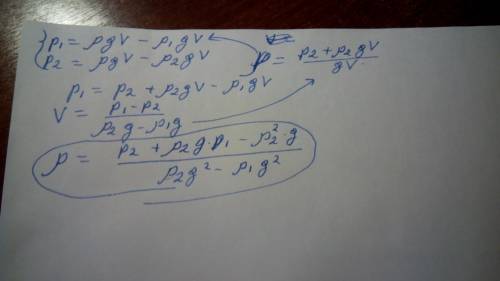 {p₁ = ρgV − ρ₁gV
{p₂ = ρgV − ρ₂gV
ρ = (p₂ + ρ₂gV)/(gV)
p₁ = p₂ + ρ₂gV − ρ₁gV
V = (p₁ − p₂)/(ρ₂g − ρ₁g)
ρ = (p₂ + ρ₂g·p₁ − ρ₂²·g)/(ρ₂g² − ρ₁g²)